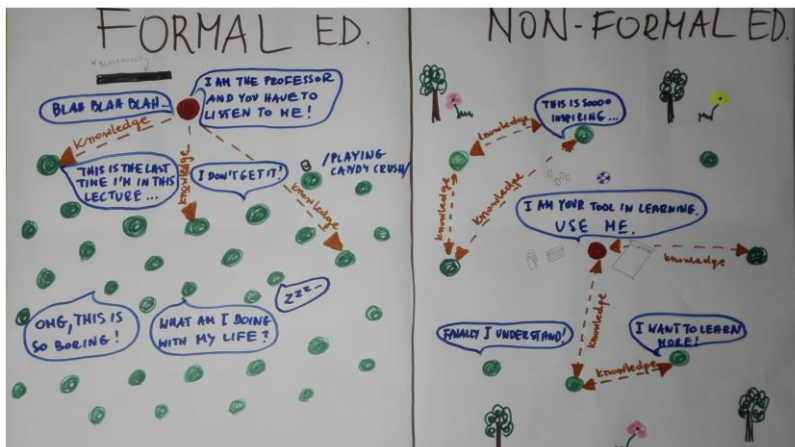 FORMAL ED.
*BLACKBOARD
BLAH BLAH BLAH...
I AM THE PROFESSOR
AND YOU HAVE TO
LISTEN TO ME!
knowledge
knowledge
knowledge
THIS IS THE LAST
TIME I'M IN THIS
LECTURE...
I DON'T GET IT!
/PLAYING
CANDY CRUSH/
ZZZ...
OMG, THIS IS
SO BORING!
WHAT AM I DOING
WITH MY LIFE?
NON-FORMAL ED.
THIS IS SOOOO
INSPIRING...
knowledge
knowledge
knowledge
I AM YOUR TOOL IN LEARNING.
USE ME.
knowledge
knowledge
FINALLY I UNDERSTAND!
I WANT TO LEARN
MORE!
knowledge